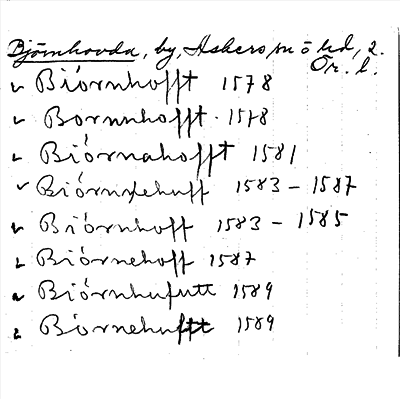 Björnhovda, by, Askers sn ö hd, 2.
Ör. l.
Biórnhofft 1578
Bornnhofft. 1578
Biórnahofft 1581
Biórnehuff 1583 - 1587
Biórnhoff 1583 - 1585
Biórnehoff 1587
Biórnhufutt 1589
Biórnehuftt 1589